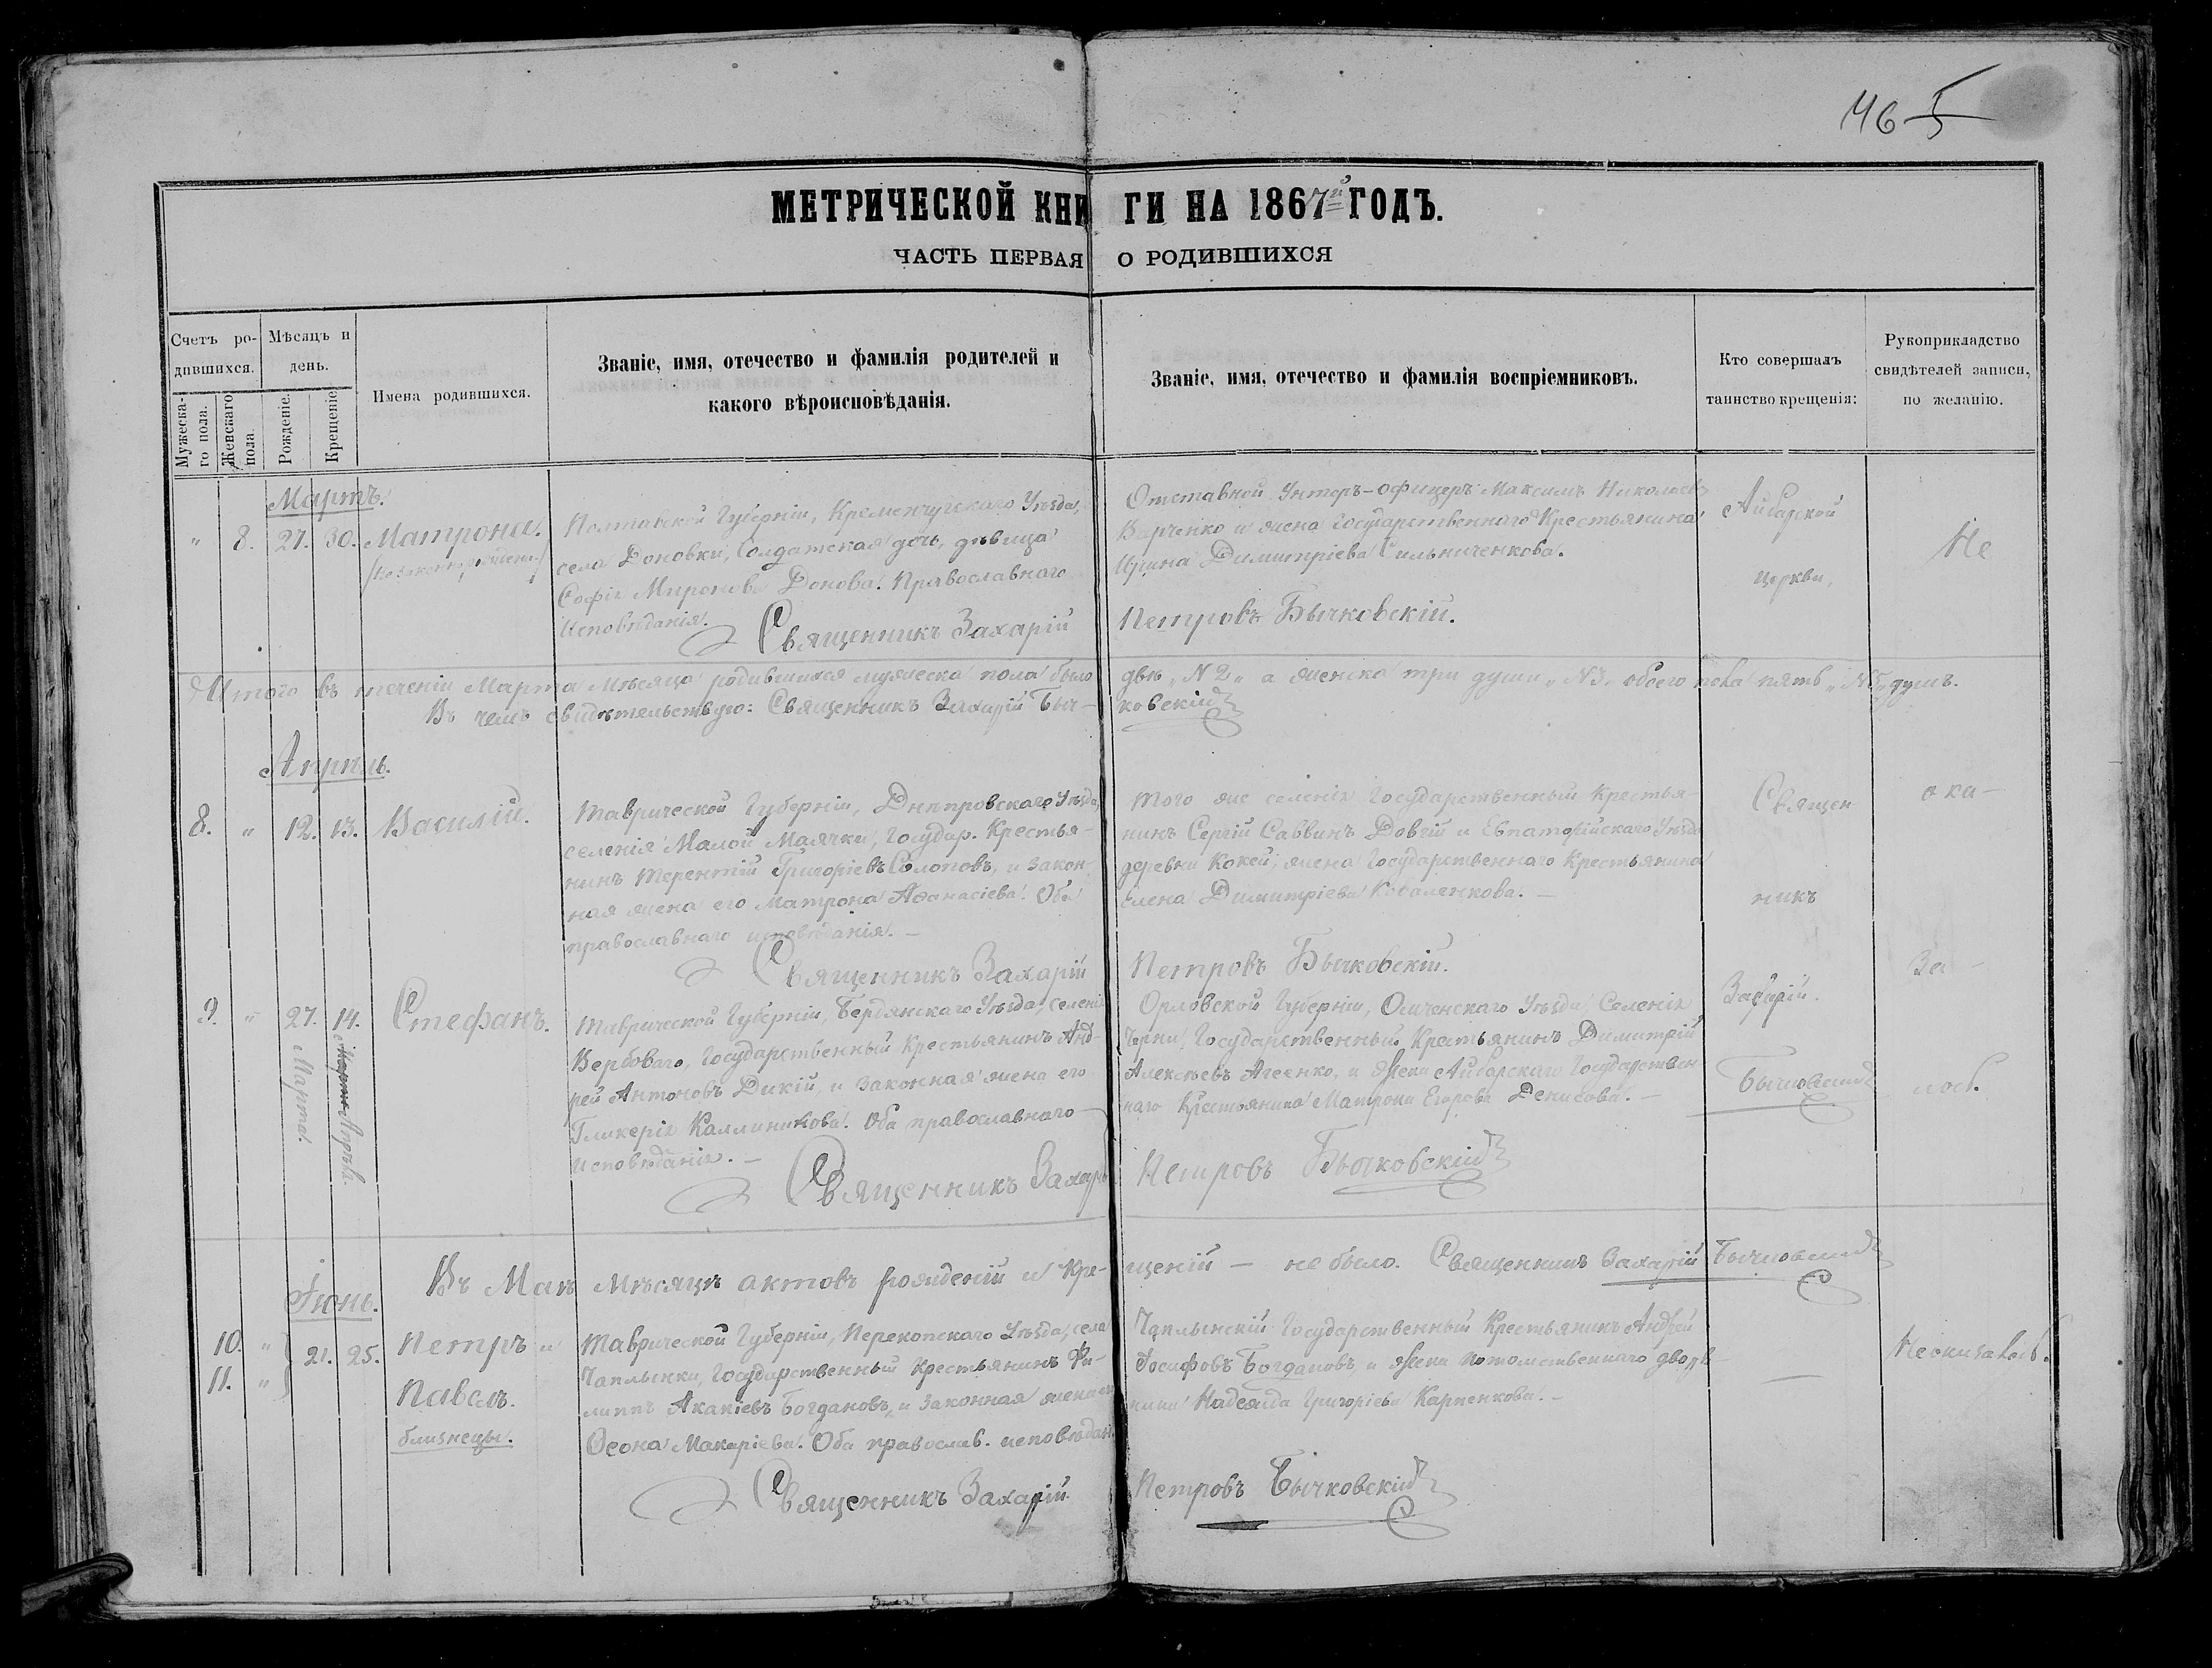 465
МЕТРИЧЕСКОЙ КНИГИ НА 1867й ГОДЪ.
ЧАСТЬ ПЕРВАЯ О РОДИВШИХСЯ
Счетъ ро-
дившихся.
Мужеска-
го пола.
Женскаго
пола.
Мѣсяцъ и
день.
Рожденіе.
Крещеніе
Имена родившихся.
Званіе, имя, отечество и фамилія родителей и
какого вѣроисповѣданія.
Званіе, имя, отечество и фамилія воспріемниковъ.
Кто совершалъ
таинство крещенія:
Рукоприкладство
свидѣтелей записи,
по желанію.
Мартъ.
" 8. 27. 30. Матрона.
/незаконнорожден./
Полтавской Губерніи, Кременчугскаго Уѣзда,
села Доновки, Солдатская дочь, дѣвица
Софія Миронова Донова. Православнаго
Исповѣданія.
Священникъ Захарій
Отставной Унтеръ-офицеръ Максимъ Николаевъ
Варченко и жена Государственнаго Крестьянина
Ирина Димитріева Сильниченкова.
Петровъ Бычковскій.
Айбарской
церкви,
Не
Итого въ теченіи Марта Мѣсяца родившихся мужеска пола было двѣ „N 2„ а женска три души „N3„ обоего пола пять „N5„ душъ.
Въ чемъ свидѣтельствую: Священникъ Захарій Быч-
ковскій
Апрѣль.
8. " 12. 13. Василій.
Таврической Губерніи, Днѣпровскаго Уѣзда,
селенія Малой Маячки, Государ. Крестья-
нинъ Терентій Григоріевъ Солоповъ, и закон-
ная жена его Матрона Аѳанасіева. Оба
православнаго исповѣданія. —
Священникъ Захарій
Того же селенія Государственный Крестья-
нинъ Сергій Саввинъ Довгій и Евпаторійскаго Уѣзда
деревни Кокей, жена Государственнаго Крестьянина
Елена Димитріева Коваленкова. —
Петровъ Бычковскій.
Священ
никъ
ока-
9. " 27. 14. Стефанъ.
Марта.
Апрѣля.
Таврической Губерніи, Бердянскаго Уѣзда, селенія
Вербоваго, Государственный Крестьянинъ Анд-
рей Антоновъ Дикій, и законная жена его
Гликерія Каллиникова. Оба православнаго
исповѣданія. —
Священникъ Захарій
Орловской Губерніи, Уѣзда Селенія
Черни, Государственный Крестьянинъ Димитрій
Алексѣевъ Агеенко, и жена Айбарскаго Государствен
наго Крестьянина Матрона Егорова Денисова. —
Петровъ Бычковскій
Захарій.
Бычковскій
За-
лось.
Въ Маѣ Мѣсяцѣ актовъ рожденій и Кре-
щеній — не было. Священникъ Захарій Бычковскій
Іюнь.
10. "
11. "
21. 25.
Петръ и
Павелъ.
близнецы.
Таврической Губерніи, Перекопскаго Уѣзда, села
Чаплынки, Государственный Крестьянинъ Фи-
липпъ Акакіевъ Богдановъ, и законная жена его
Ѳеона Макаріева. Оба православ. исповѣдан.
Священникъ Захарій
Чаплынскій Государственный Крестьянинъ Андрей
Іосифовъ Богдановъ, и жена потомственнаго дворя
нина Надежда Григоріева Карпенкова. —
Петровъ Бычковскій
—
Неоказалось.